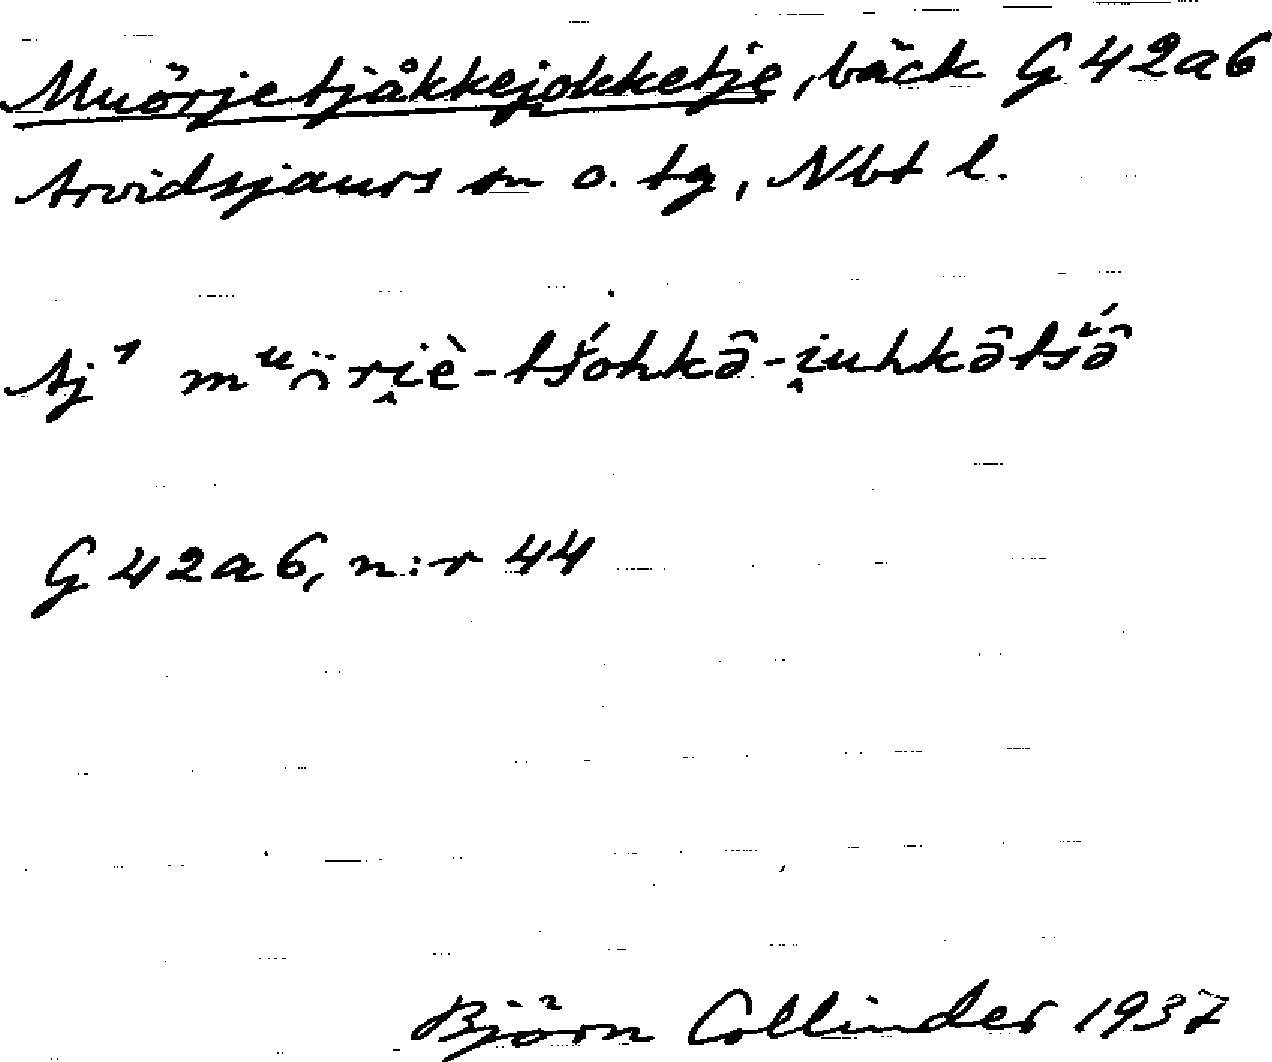 Muörjetjåkkejokketje, bäck G 42a6
Arvidsjaurs sn o. tg, Nbt l.
Aj¹ mᵘöri̯è-tśohkə̂-i̯uhkə̂tśə̂
G 42a6, n:r 44
Björn Collinder 1937